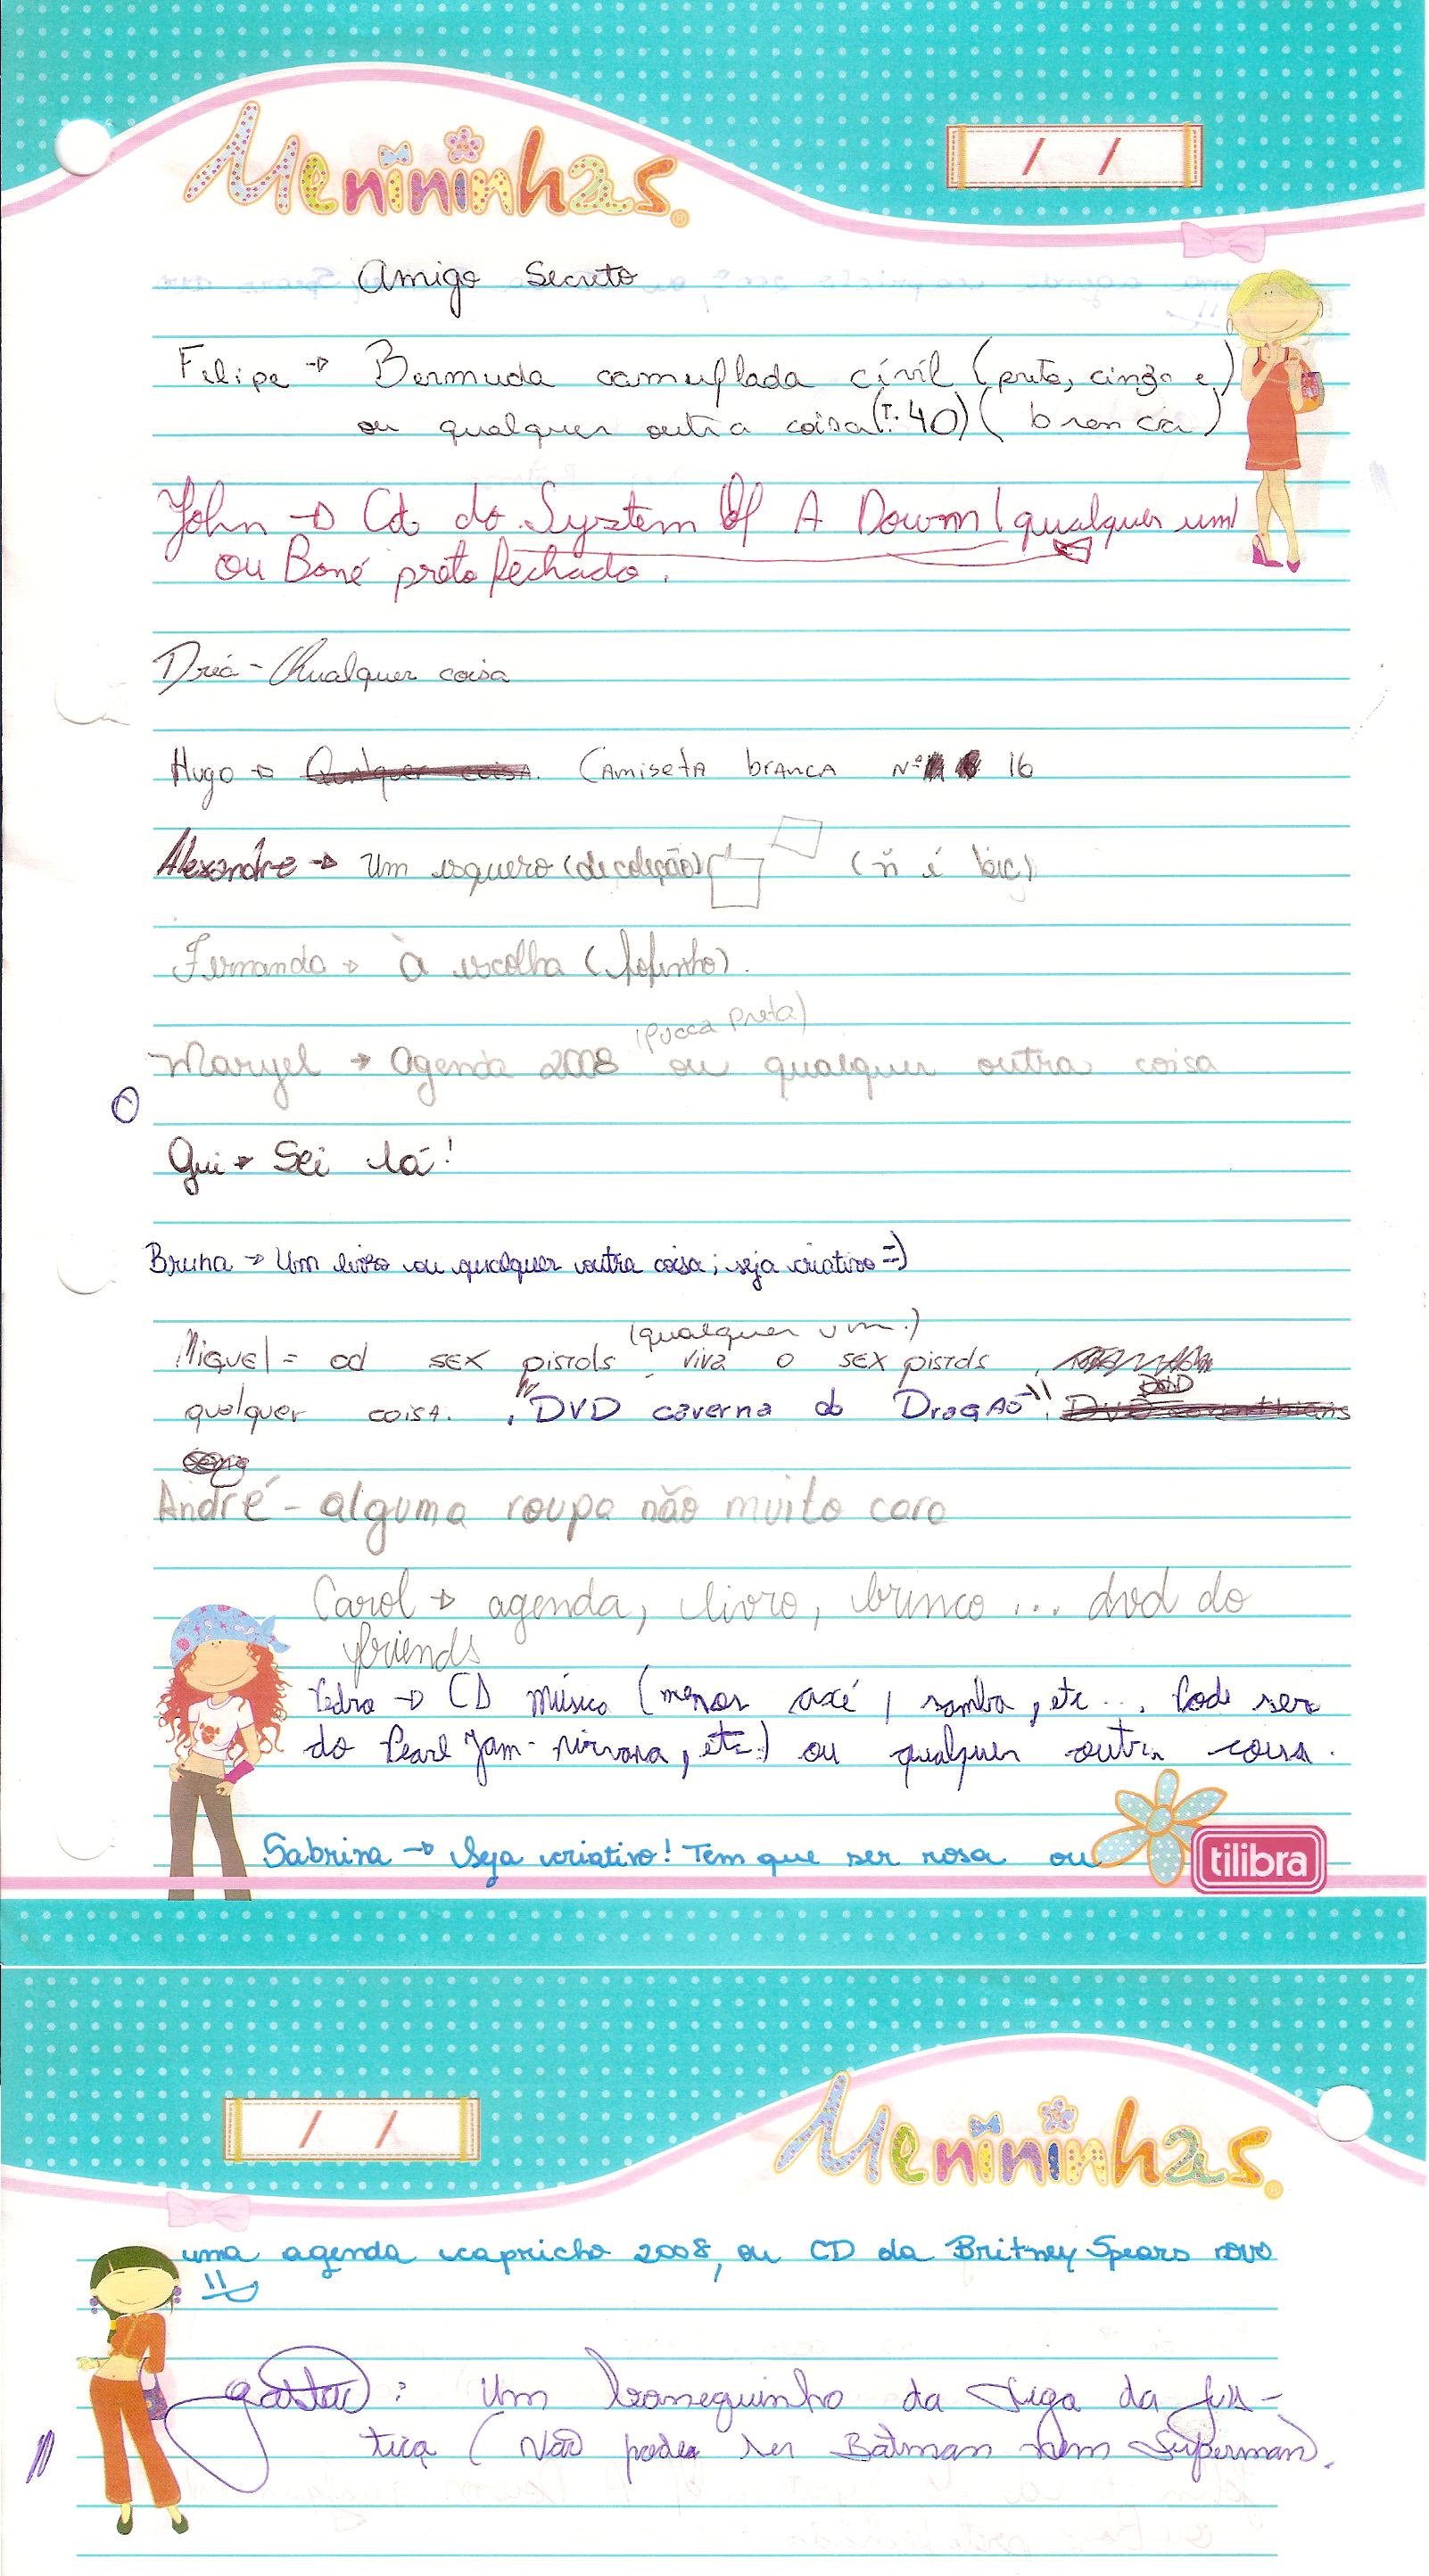 Menininhas
/ /
Amigo Secreto
Felipe → Bermuda camuflada civil (preta, cinza e)
ou qualquer outra coisa (T. 40) (branca)
John → Cd do System Of A Down (qualquer um)
ou Boné preto fechado.
Dria - Qualquer coisa
Hugo → Qualquer coisa. Camiseta branca Nº 16
Alexandre → Um isquero (de coleção) (ñ é bic)
Fernanda → À escolha (fofinho).
(Pucca preta)
Maryel → Agenda 2008 ou qualquer outra coisa
Gui → Sei lá!
Bruna → Um livro ou qualquer outra coisa; seja criativo =)
(qualquer um.)
Miguel = cd sex pistols, viva o sex pistols,
qualquer coisa. , "DVD caverna do Dragão".
André - alguma roupa não muito cara
Carol → agenda, livro, brinco ... dvd do
friends
Pedro → CD Música (menos axé, samba, etc... Pode ser
do Pearl Jam - nirvana, etc.) ou qualquer outra coisa.
Sabrina → Seja criativo! Tem que ser rosa ou
tilibra
/ /
Menininhas
uma agenda capricho 2008, ou CD da Britney Spears novo
gastão: Um bonequinho da Liga da Jus-
tiça (Não poder ser Batman nem Superman).